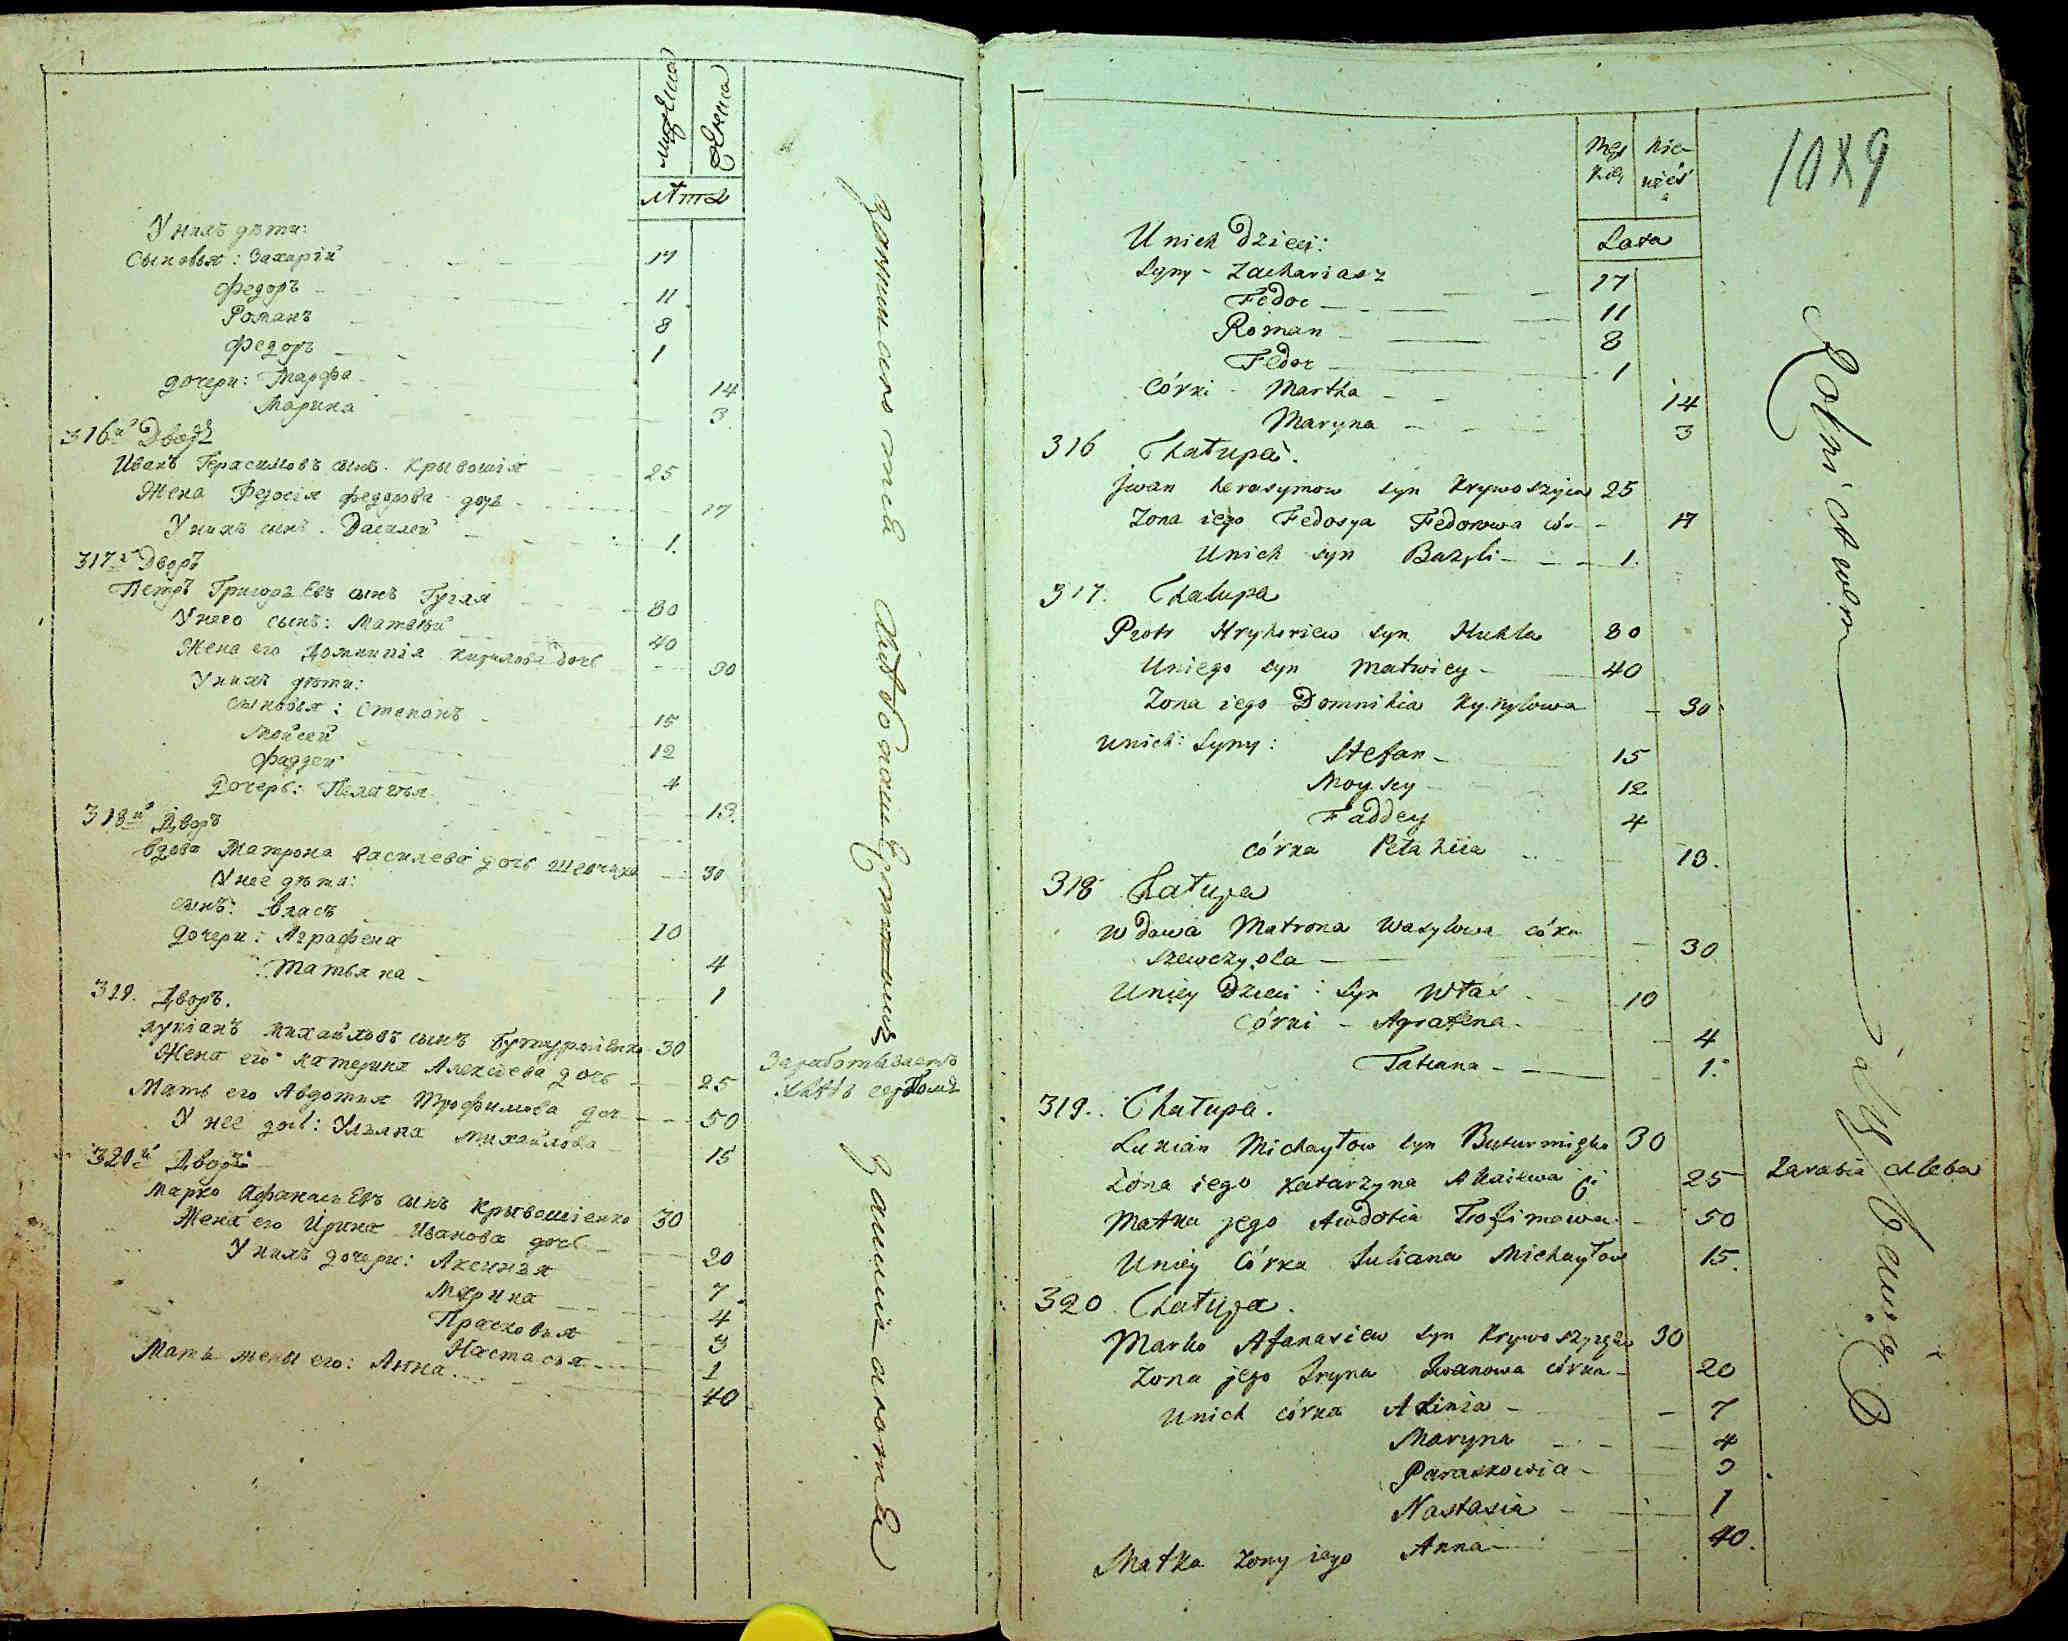 мужеска
женска
лѣта
У нихъ дѣти:
Сыновья: Захарій 17
Федоръ 11
Романъ 8
Федоръ 1
дочери: Марфа 14
Марина 3
316й Дворъ
Иванъ Герасимовъ сынъ Крывошія 25
Жена Федосія Федорова дочь 17
У нихъ сынъ Василей 1.
317й Дворъ
Петръ Григорьевъ сынъ Гугля 80
У него сынъ: Матвѣй 40
Жена его Домникія Кирилова дочь 30
У нихъ дѣти:
сыновья: Степанъ 15
Мойсей 12
Фаддей 4
Дочерь: Пелагея 13.
318й Дворъ
вдова Матрона Василева дочь 30
У нее дѣти:
сынъ: Власъ 10
дочери: Аграфена 4
Татьяна 1
319. Дворъ.
Лукіанъ Михайловъ сынъ 30
Жена его Катерина Алексѣева дочь 25
Мать его Авдотия Трофимова доч 50
У нее дочь: Ульяна Михайлова 15
320й Дворъ
Марко Афанасьевъ сынъ Крывошіенко 30
Жена его Ирина Иванова дочь 20
У нихъ дочери: Аксинья 7
Марина 4
Прасковья 3
Настасья 1
Мать жены его: Анна 40
хлѣбопашествомъ
Зарабатываетъ
хлѣбъ
1089
Męż kie, Kie- wieś
Lata
U nich Dzieci:
Syny - Zachariasz 17
Fedor 11
Roman 8
Fedor 1
Córki - Martha 14
Maryna 3
316 Chałupa.
Jwan Herasymow syn Krywoszyia 25
Zona iego Fedosya Fedorowa có- 17
U nich syn Bazyli 1.
317. Chałupa
Piotr Hryhoriew syn Huhla 80
U niego syn Matwiey 40
Zona iego Domnikia Kyryłowa 30
U nich: Syny: Stefan 15
Moysey 12
Faddey 4
córka Pelahiia 13.
318 Chałupa
Wdowa Matrona Wasylowa córka
30
U niey Dzieci: Syn Włas 10
Córki - Agrafena 4
Tatiana 1.
319.. Chałupa.
Lukian Michayłow syn 30
Zona iego Katarzyna 25 Zarabia chleba
Matka jego Awdotia Trofimowa 50
U niey Córka Juliana Michayłow 15.
320. Chałupa.
Marko Afanasiew syn 30
Zona jego Iryna Iwanowa córka 20
U nich córka Axinia 7
Maryna 4
Paraskowia 3
Nastasia 1
Matka zony iego Anna 40.
Rolnictwem